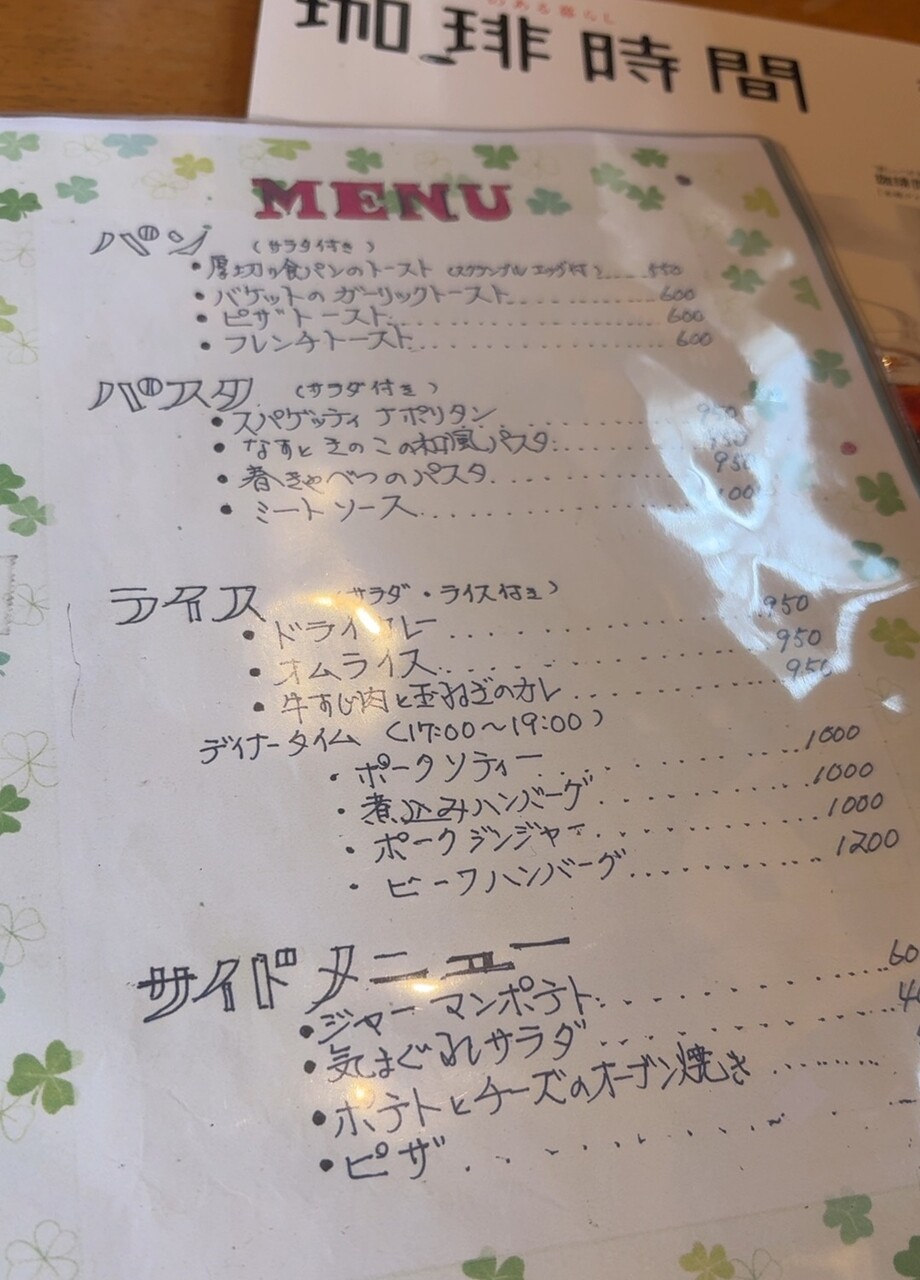 のある暮らし
珈琲時間
MENU
パン (サラダ付き)
・厚切り食パンのトースト (スクランブルエッグ付)......550
・バケットのガーリックトースト......600
・ピザトースト......600
・フレンチトースト......600
パスタ (サラダ付き)
・スパゲッティナポリタン......950
・なすときのこの和風パスタ......950
・春きゃべつのパスタ......950
・ミートソース......
ライス (サラダ・ライス付き)
・ドライカレー......950
・オムライス......950
・牛すじ肉と玉ねぎのカレー......950
ディナータイム (17:00〜19:00)
・ポークソティー......1000
・煮込みハンバーグ......1000
・ポークジンジャー......1000
・ビーフハンバーグ......1200
サイドメニュー
・ジャーマンポテト......60
・気まぐれサラダ......4
・ポテトとチーズのオーブン焼き......
・ピザ......